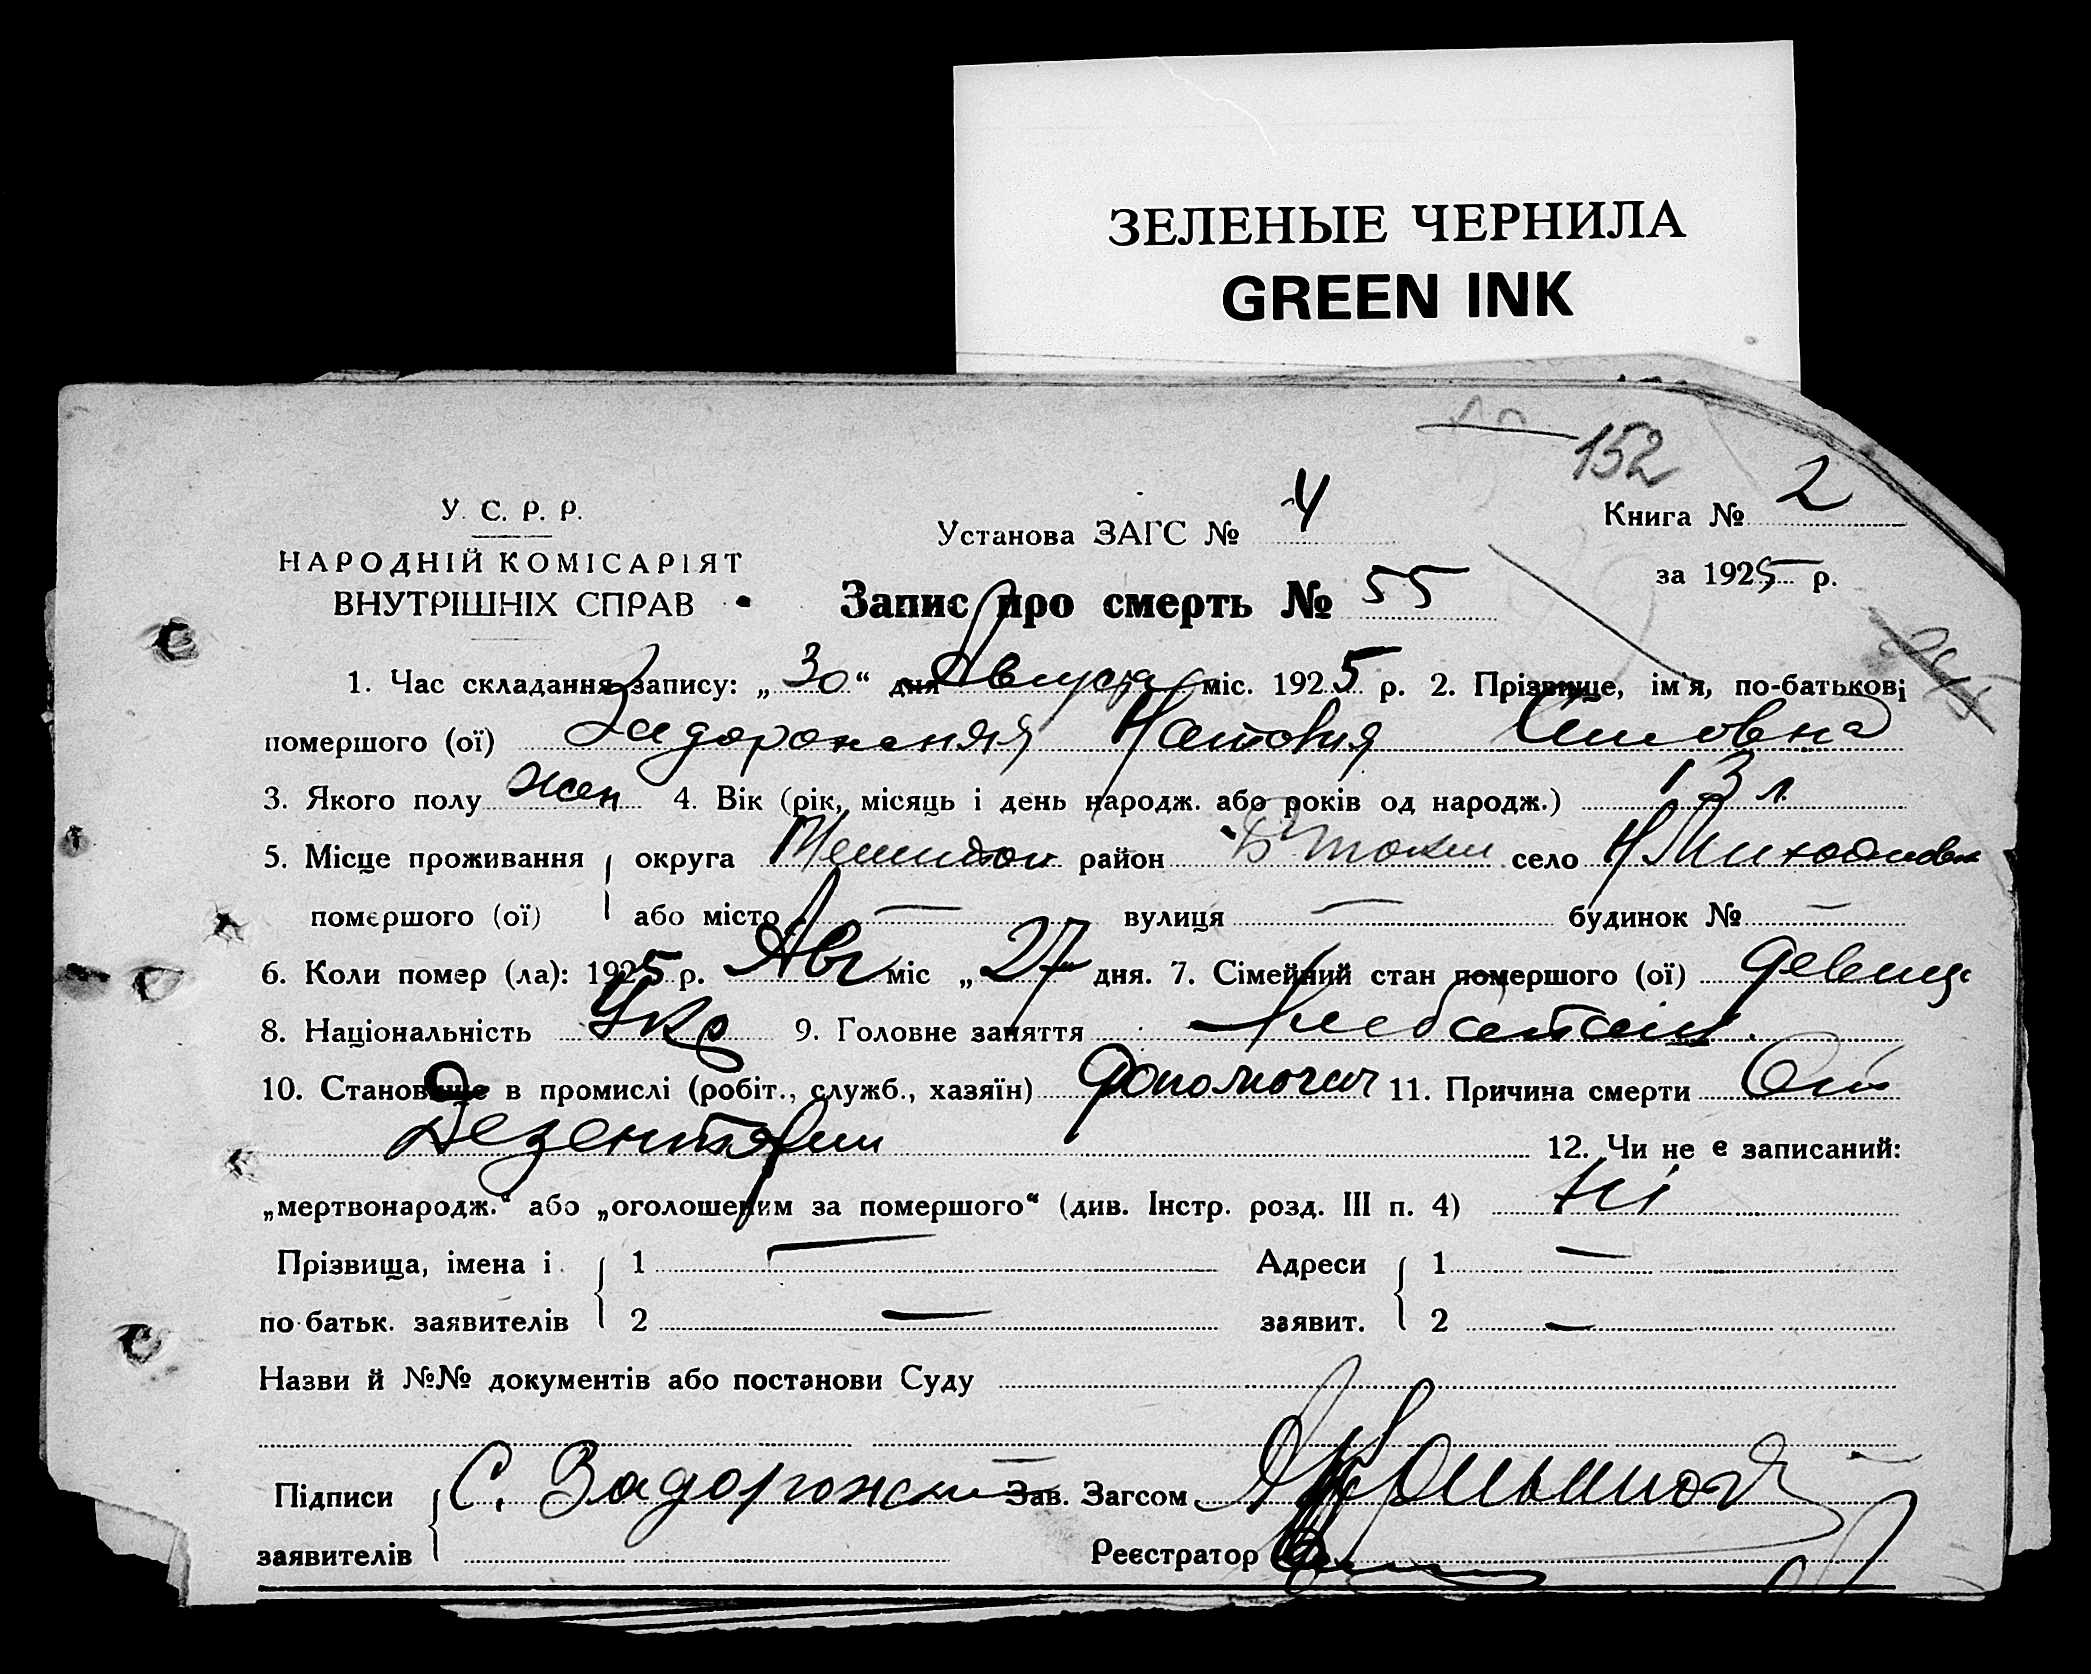 ЗЕЛЕНЫЕ ЧЕРНИЛА
GREEN INK
152
У. С. Р. Р.
НАРОДНІЙ КОМІСАРІЯТ
ВНУТРІШНІХ СПРАВ
Установа ЗАГС № 4
Книга № 2
за 1925 р.
Запис про смерть № 55
1. Час складання запису: „30“ дня Августа міс. 1925 р. 2. Прізвище, ім'я, по-батькові
помершого (ої) Задорожняя
3. Якого полу жен 4. Вік (рік, місяць і день народж. або років од народж.) 13 л.
5. Місце проживання округа район Б Токм село
помершого (ої) або місто — вулиця — будинок № —
6. Коли помер (ла): 1925 р. Авг міс „27“ дня. 7. Сімейний стан помершого (ої) девица
8. Національність Укр 9. Головне заняття
10. Становище в промислі (робіт., служб., хазяїн) 11. Причина смерти От
Дезентерии 12. Чи не є записаний:
„мертвонародж.“ або „оголошеним за помершого“ (див. Інстр. розд. III п. 4) Ні
Прізвища, імена і 1 — Адреси 1 —
по батьк. заявителів 2 — заявит. 2 —
Назви й №№ документів або постанови Суду
Підписи С. Задорожний Зав. Загсом
заявителів Реєстратор